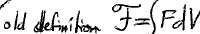 old definition ℱ=∫FdV